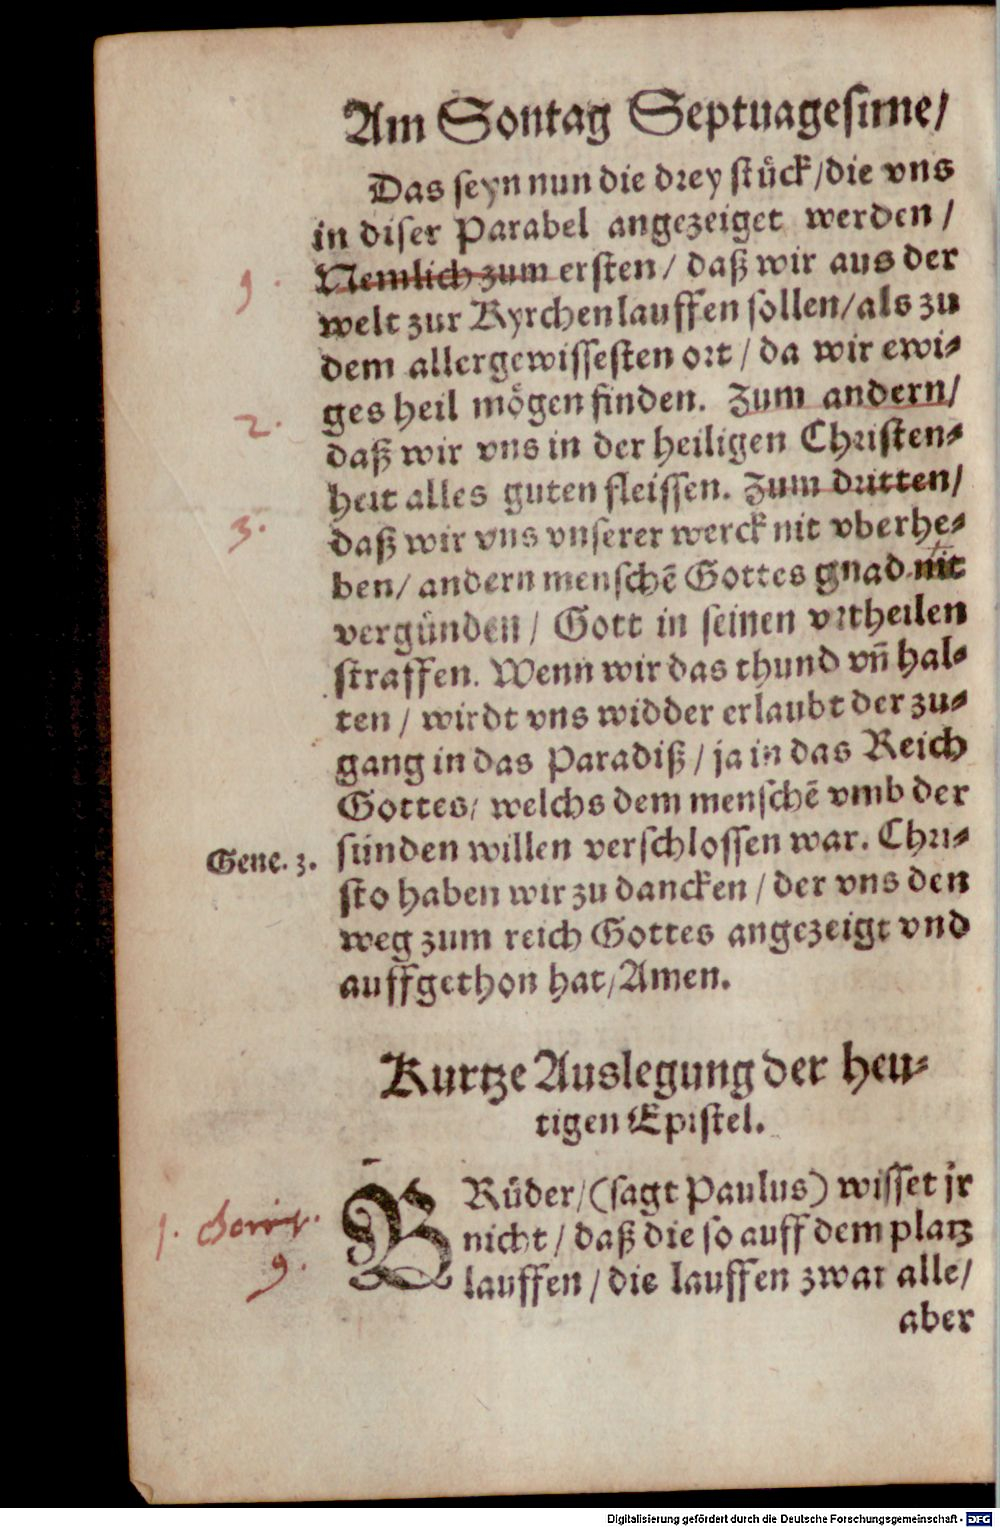 Am Sontag Septuagesime/
Das seyn nun die drey stůck/die vns
in diser Parabel angezeiget werden/
1.
Nemlich zum ersten/ daß wir aus der
welt zur Kyrchen lauffen sollen/als zu
dem allergewissesten ort/ da wir ewi⸗
ges heil mögen finden. Zum andern/
2.
daß wir vns in der heiligen Christen⸗
heit alles guten fleissen. Zum dritten/
3.
daß wir vns vnserer werck nit vberhe⸗
ben/ andern menschē Gottes gnad nit
vergünden/ Gott in seinen vrtheilen
straffen. Wenn wir das thund vñ hal⸗
ten/ wirdt vns widder erlaubt der zu⸗
gang in das Paradiß/ ja in das Reich
Gottes/ welchs dem menschē vmb der
Gene. 3.
sünden willen verschlossen war. Chri⸗
sto haben wir zu dancken/ der vns den
weg zum reich Gottes angezeigt vnd
auffgethon hat/Amen.
Kurtze Auslegung der heu⸗
tigen Epistel.
BRüder/(sagt Paulus) wisset jr
1. Corint.
9.
nicht/ daß die so auff dem platz
lauffen/ die lauffen zwar alle/
aber
Digitalisierung gefördert durch die Deutsche Forschungsgemeinschaft - DFG